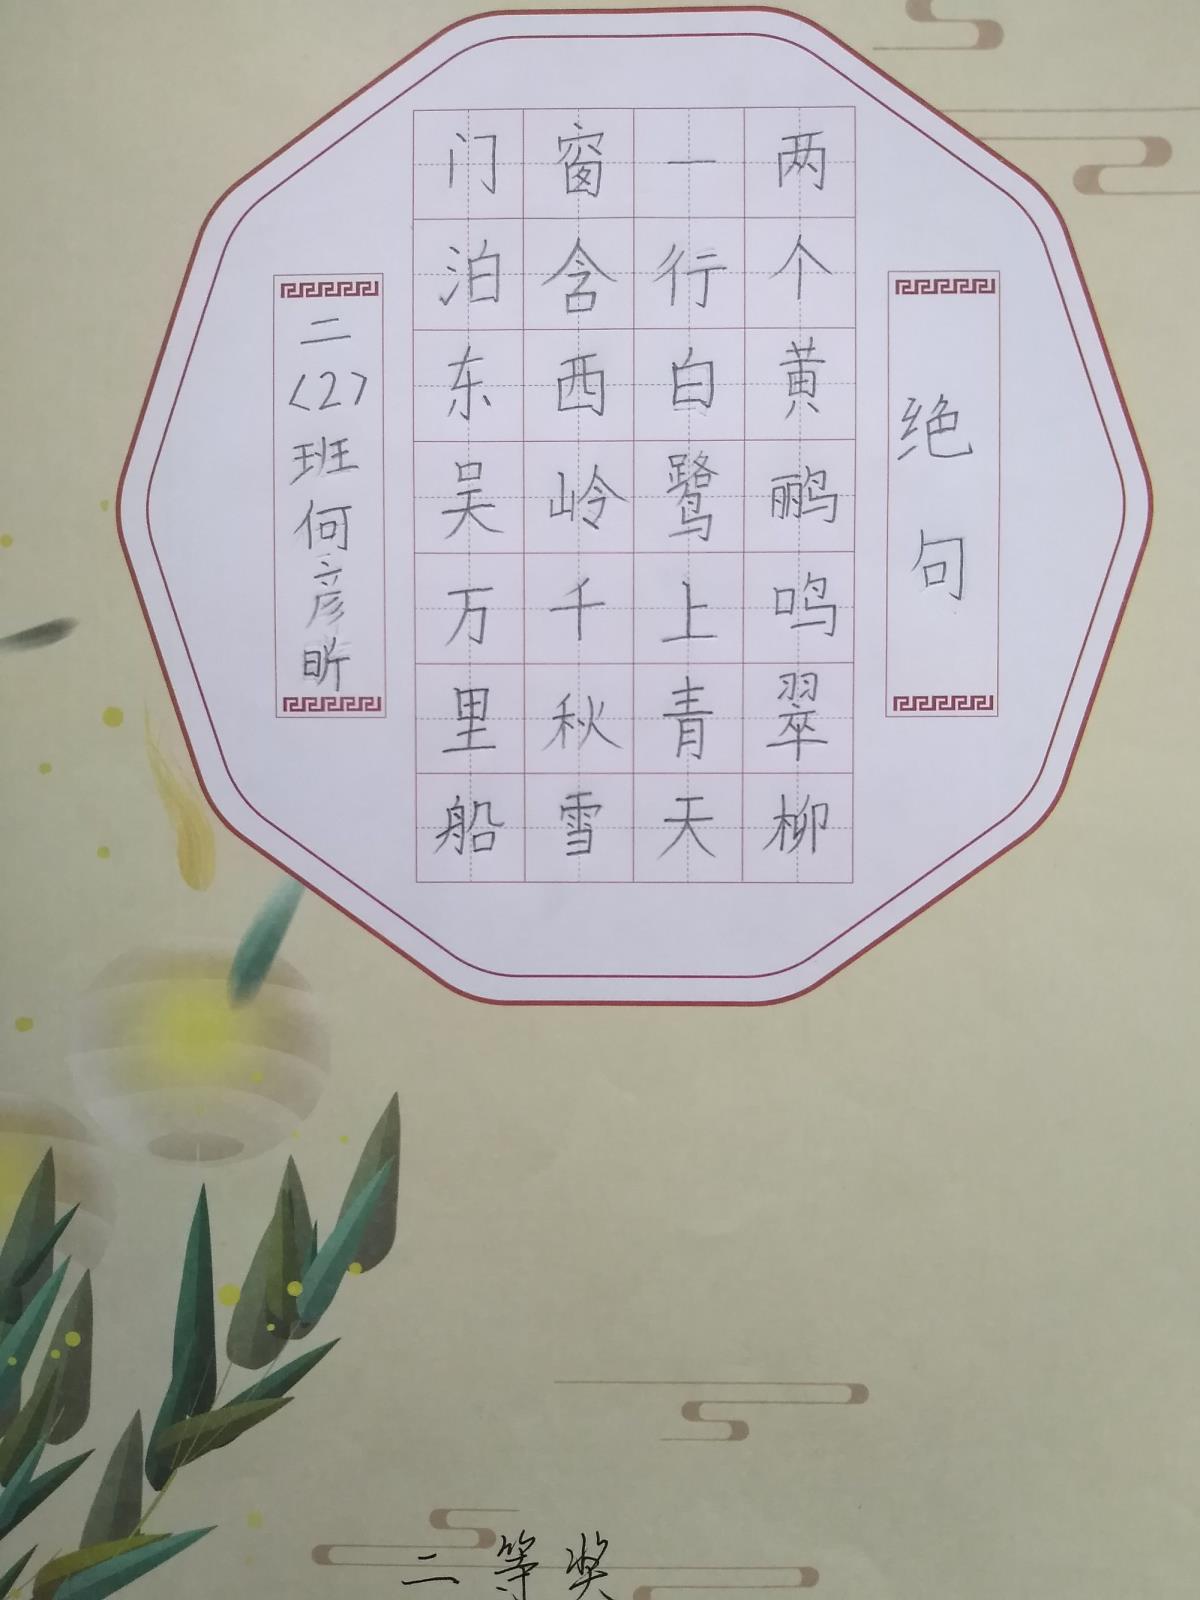 绝句
两个黄鹂鸣翠柳
一行白鹭上青天
窗含西岭千秋雪
门泊东吴万里船
二(2)班何彦昕
二等奖